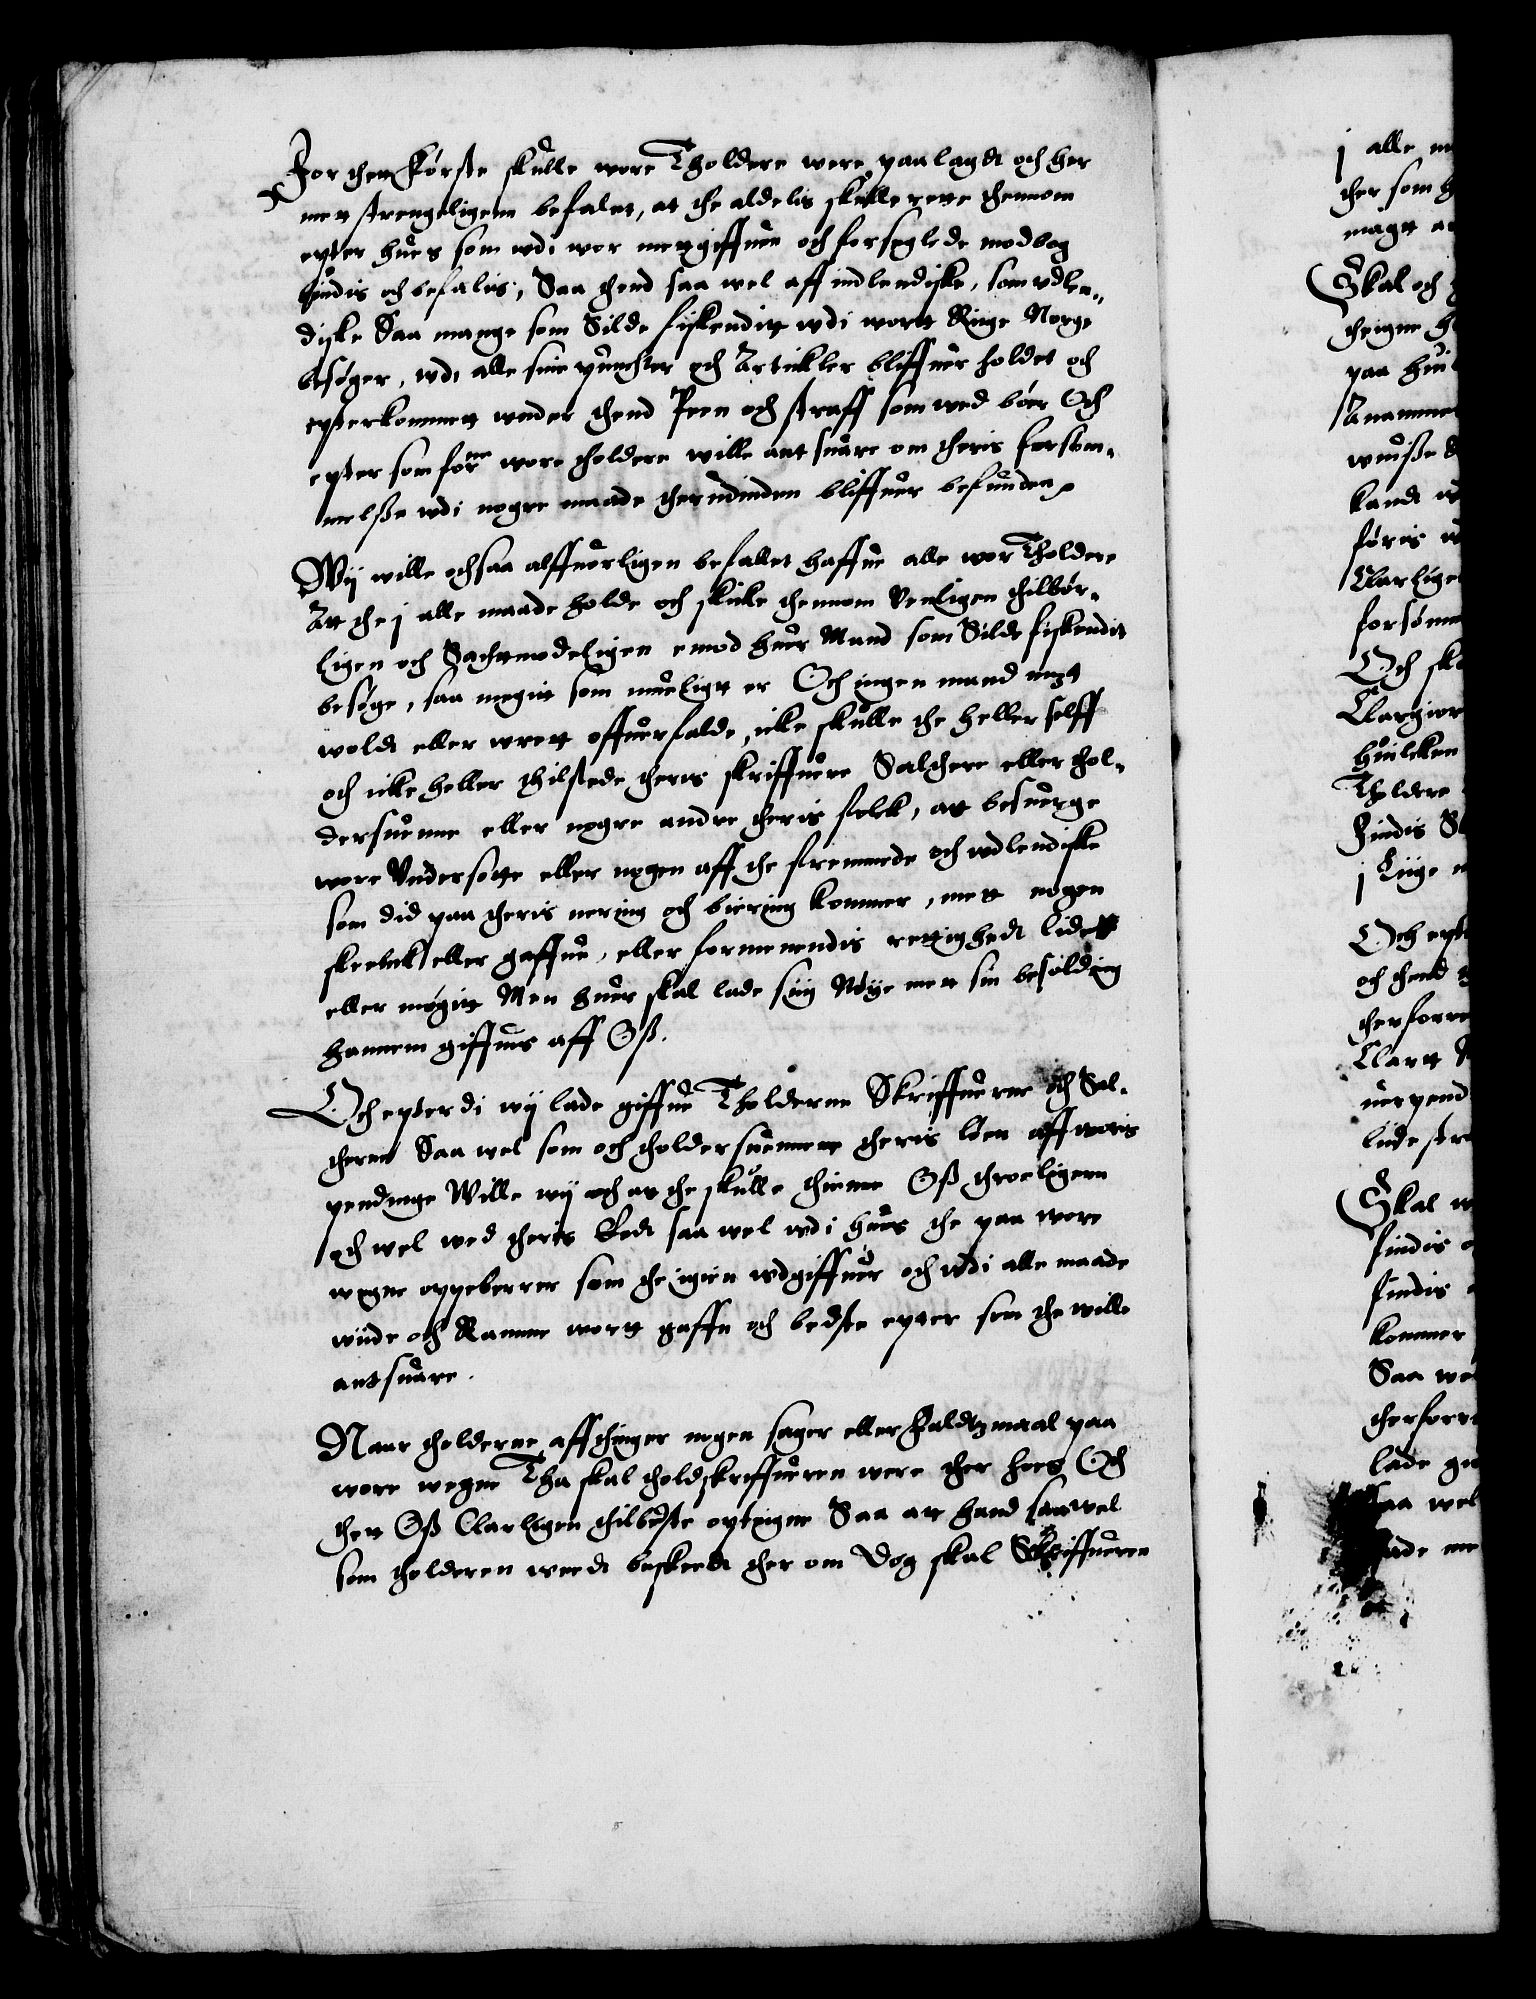 For thet Første skulle wore Tholdere were paalagdt och her
mett strengeligenn befalet, at the aldelis skulle rette thennom
epter hues som wdi wor mettgiffuen och forseglede modbog
biudis och befalis, Saa thend saa wel aff indlendiske, som vdlen-
diske Saa mange som Silde fiskendit wdi wortt Riige Norge
besøger, wdi alle sine puncter och Artickler bliffuer holdet och
epterkommett wnder thend Peen och straff som wed bør Och
epter som forne wore tholdere wille antsuare om theris forsøm-
melße wdi nogre maade therudinden bliffuer befunden
Wij wille ochsaa alffuorligen befallet haffue alle wor Tholdere
Att the j alle maade holde och skicke thennom Venligen thilbør-
ligen och Sachtmodeligen emod huer Mand som Silde fiskendit
besøge, saa megitt som mueligtt er Och ingen mand mett
woldt eller wrett offuerfalde, icke skulle the heller selff
och icke heller thilstede theris skriffuere Salthere eller thol-
dersuenne eller nogre andre theris folck, at besuerge
wore Vndersotte eller nogen aff the fremmede och wdlendiske
som did paa theris nering och biering kommer, mett nogen
skenck eller gaffue, eller formenendis rettighedt lidett
eller møgitt Men huer skal lade siig Nøye mett sin besolding
hannem giffues aff Oß.
Och epterdi wij lade giffue Tholderne Skriffuerne och Sal-
therne Saa wel som och tholdersuennene theris løen aff woris
pendinge Wille wij och at the skulle thienne Oß throeligenn
och wel wed theris Eedt saa wel wdi hues the paa wore
wegne oppeberrer som the igien wdgiffuer och wdi alle maade
wiide och Ramme wortt gaffn och bedste epter som the wille
antsuare.
Naar tholderne aff thinger nogen sager eller Faldtzmaal paa
wore wegne Tha skal tholdskriffueren were ther hoes Och
thet Oß Clarligen thilbeste opteigne Saa att hand saa wel
som tholderen weedt beskeedt ther om Dog skal Skriffueren
j alle
ther som
magtt
Skal och
theigne
paa
Anamme
kandt
føris
Clarlige
forsømm
Och ska
Clargiør
huilcken
Tholdere
Findis
j Liige
Och ept
och thend
therforre
Clartt
uerpend
liide stra
Skal
findis
findis
kommer
Saa wel
therforre
lade
saa wel